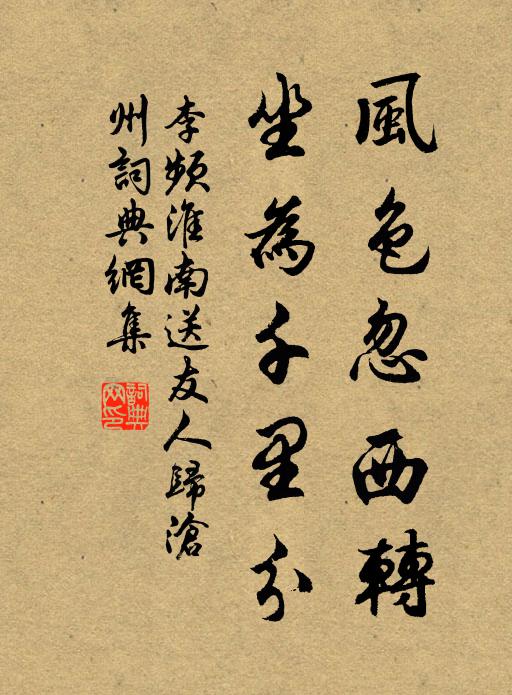 風色忽西轉
坐為千里分
李頻淮南送友人歸滄
州詞典網集
詞典
网印